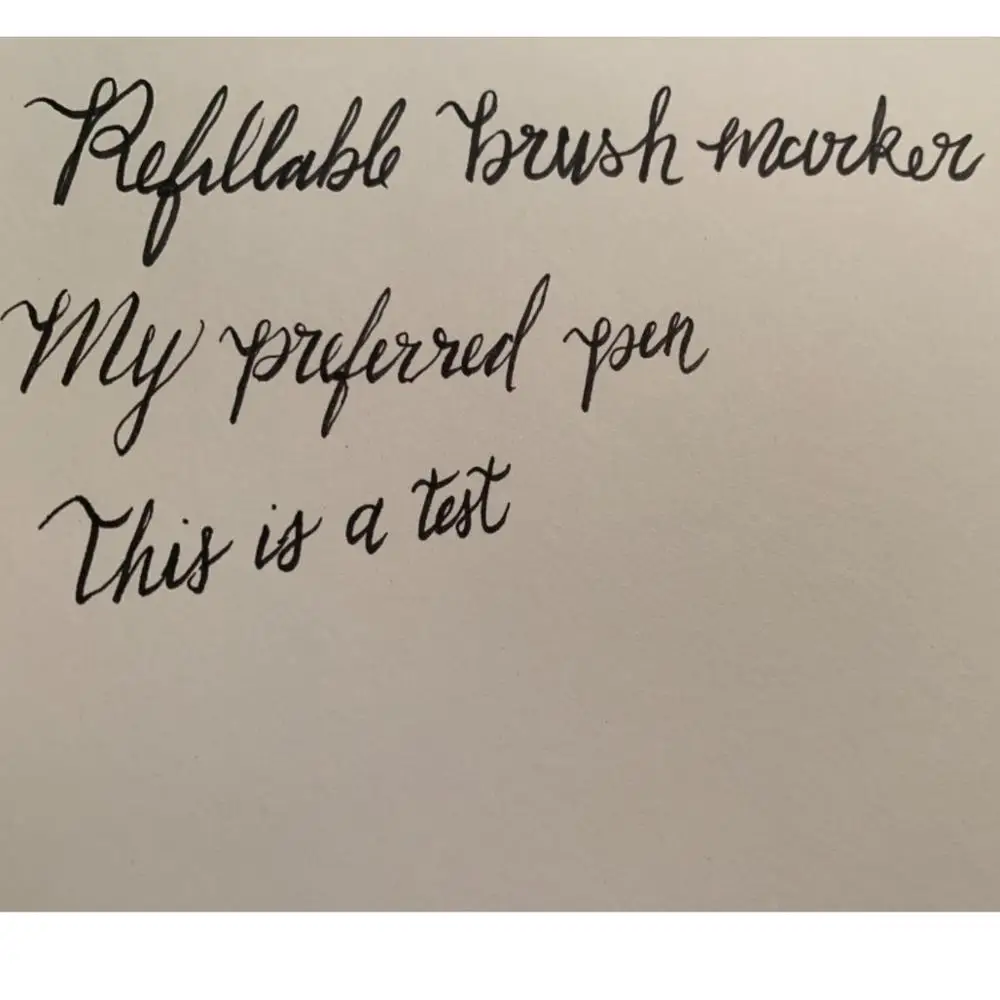 Refillable brush marker
My preferred pen
This is a test